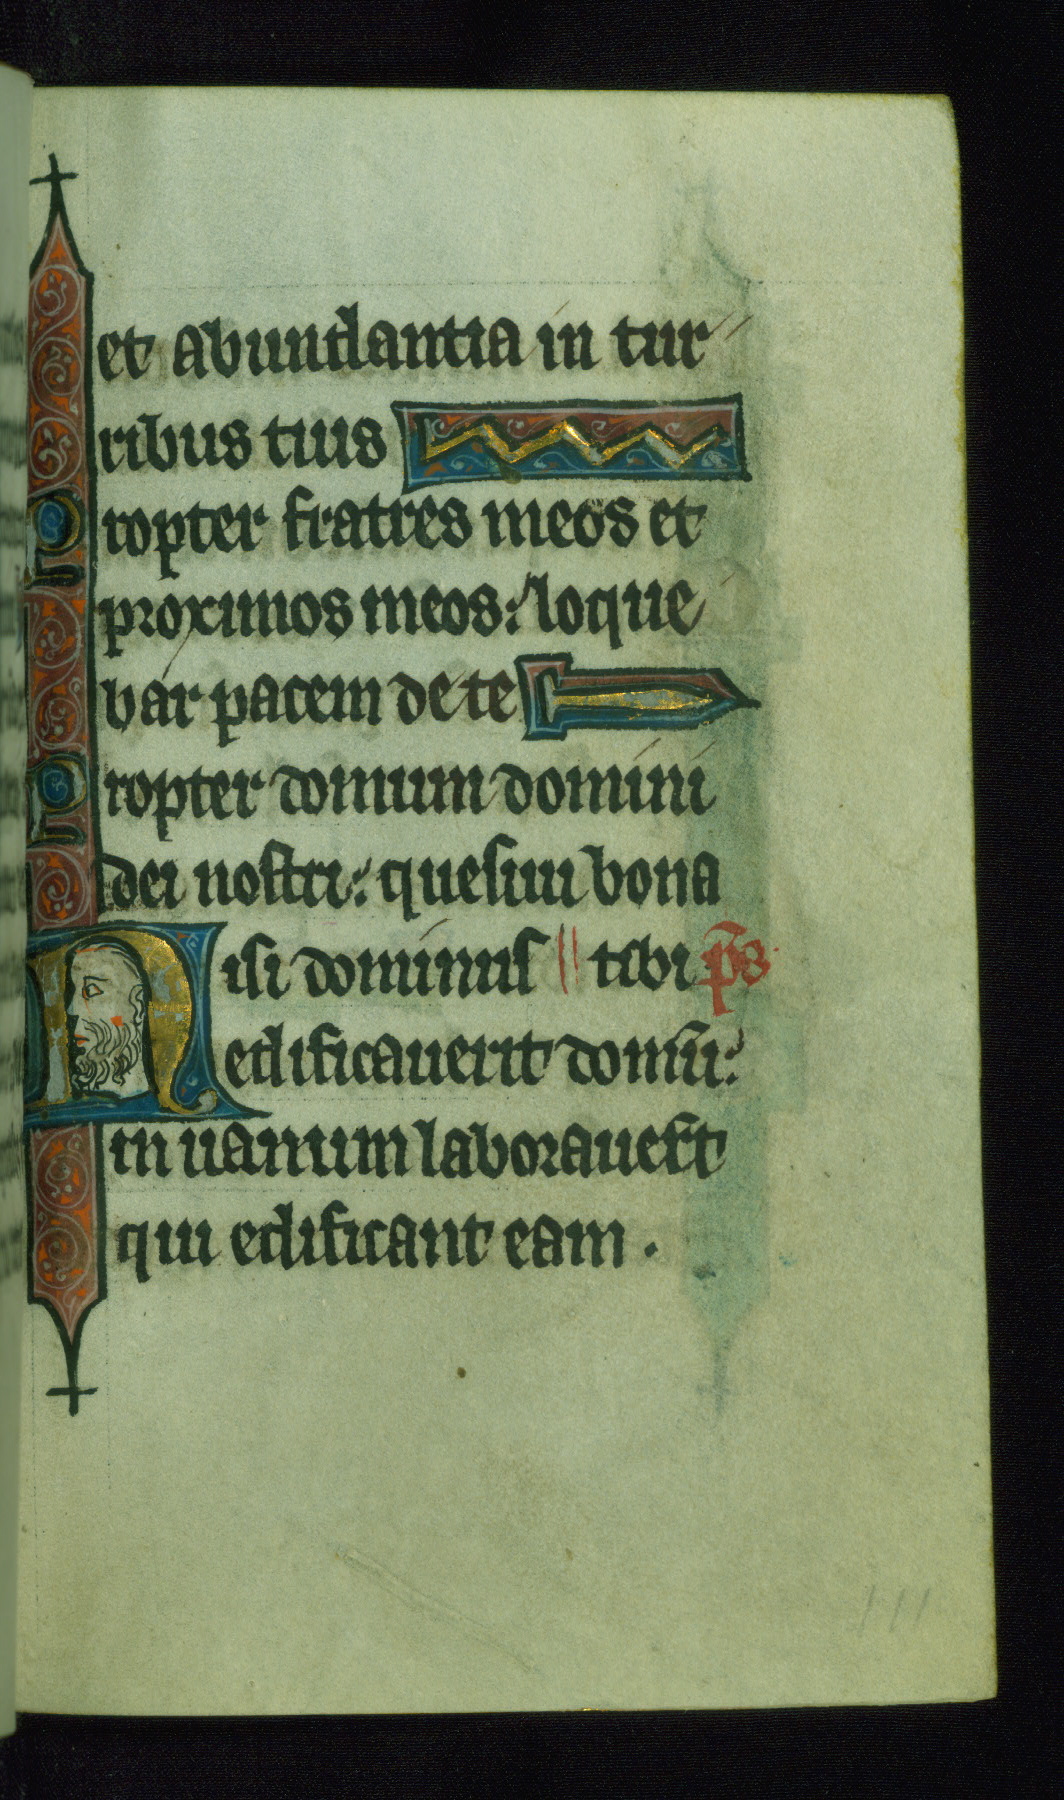 et abundantia in tur
ribus tuis
Propter fratres meos et
proximos meos: loque
bar pacem de te
Propter domum domini
dei nostri: quesiui bona
Nisi dominus || tibi p̄s
edificauerit domū:
in uanum laborauer̄t
qui edificant eam .
111